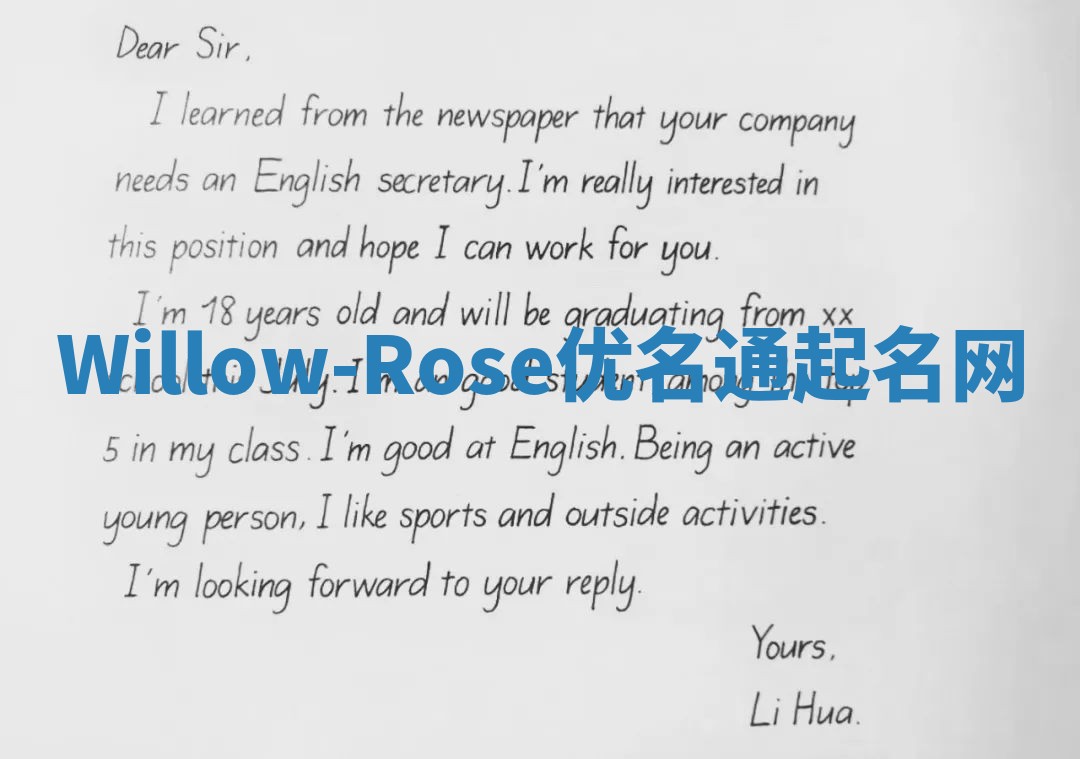 Dear Sir,
I learned from the newspaper that your company
needs an English secretary. I'm really interested in
this position and hope I can work for you.
I'm 18 years old and will be graduating from xx
Willow-Rose优名通起名网
school this July. I'm a good student among the top
5 in my class. I'm good at English. Being an active
young person, I like sports and outside activities.
I'm looking forward to your reply.
Yours,
Li Hua.